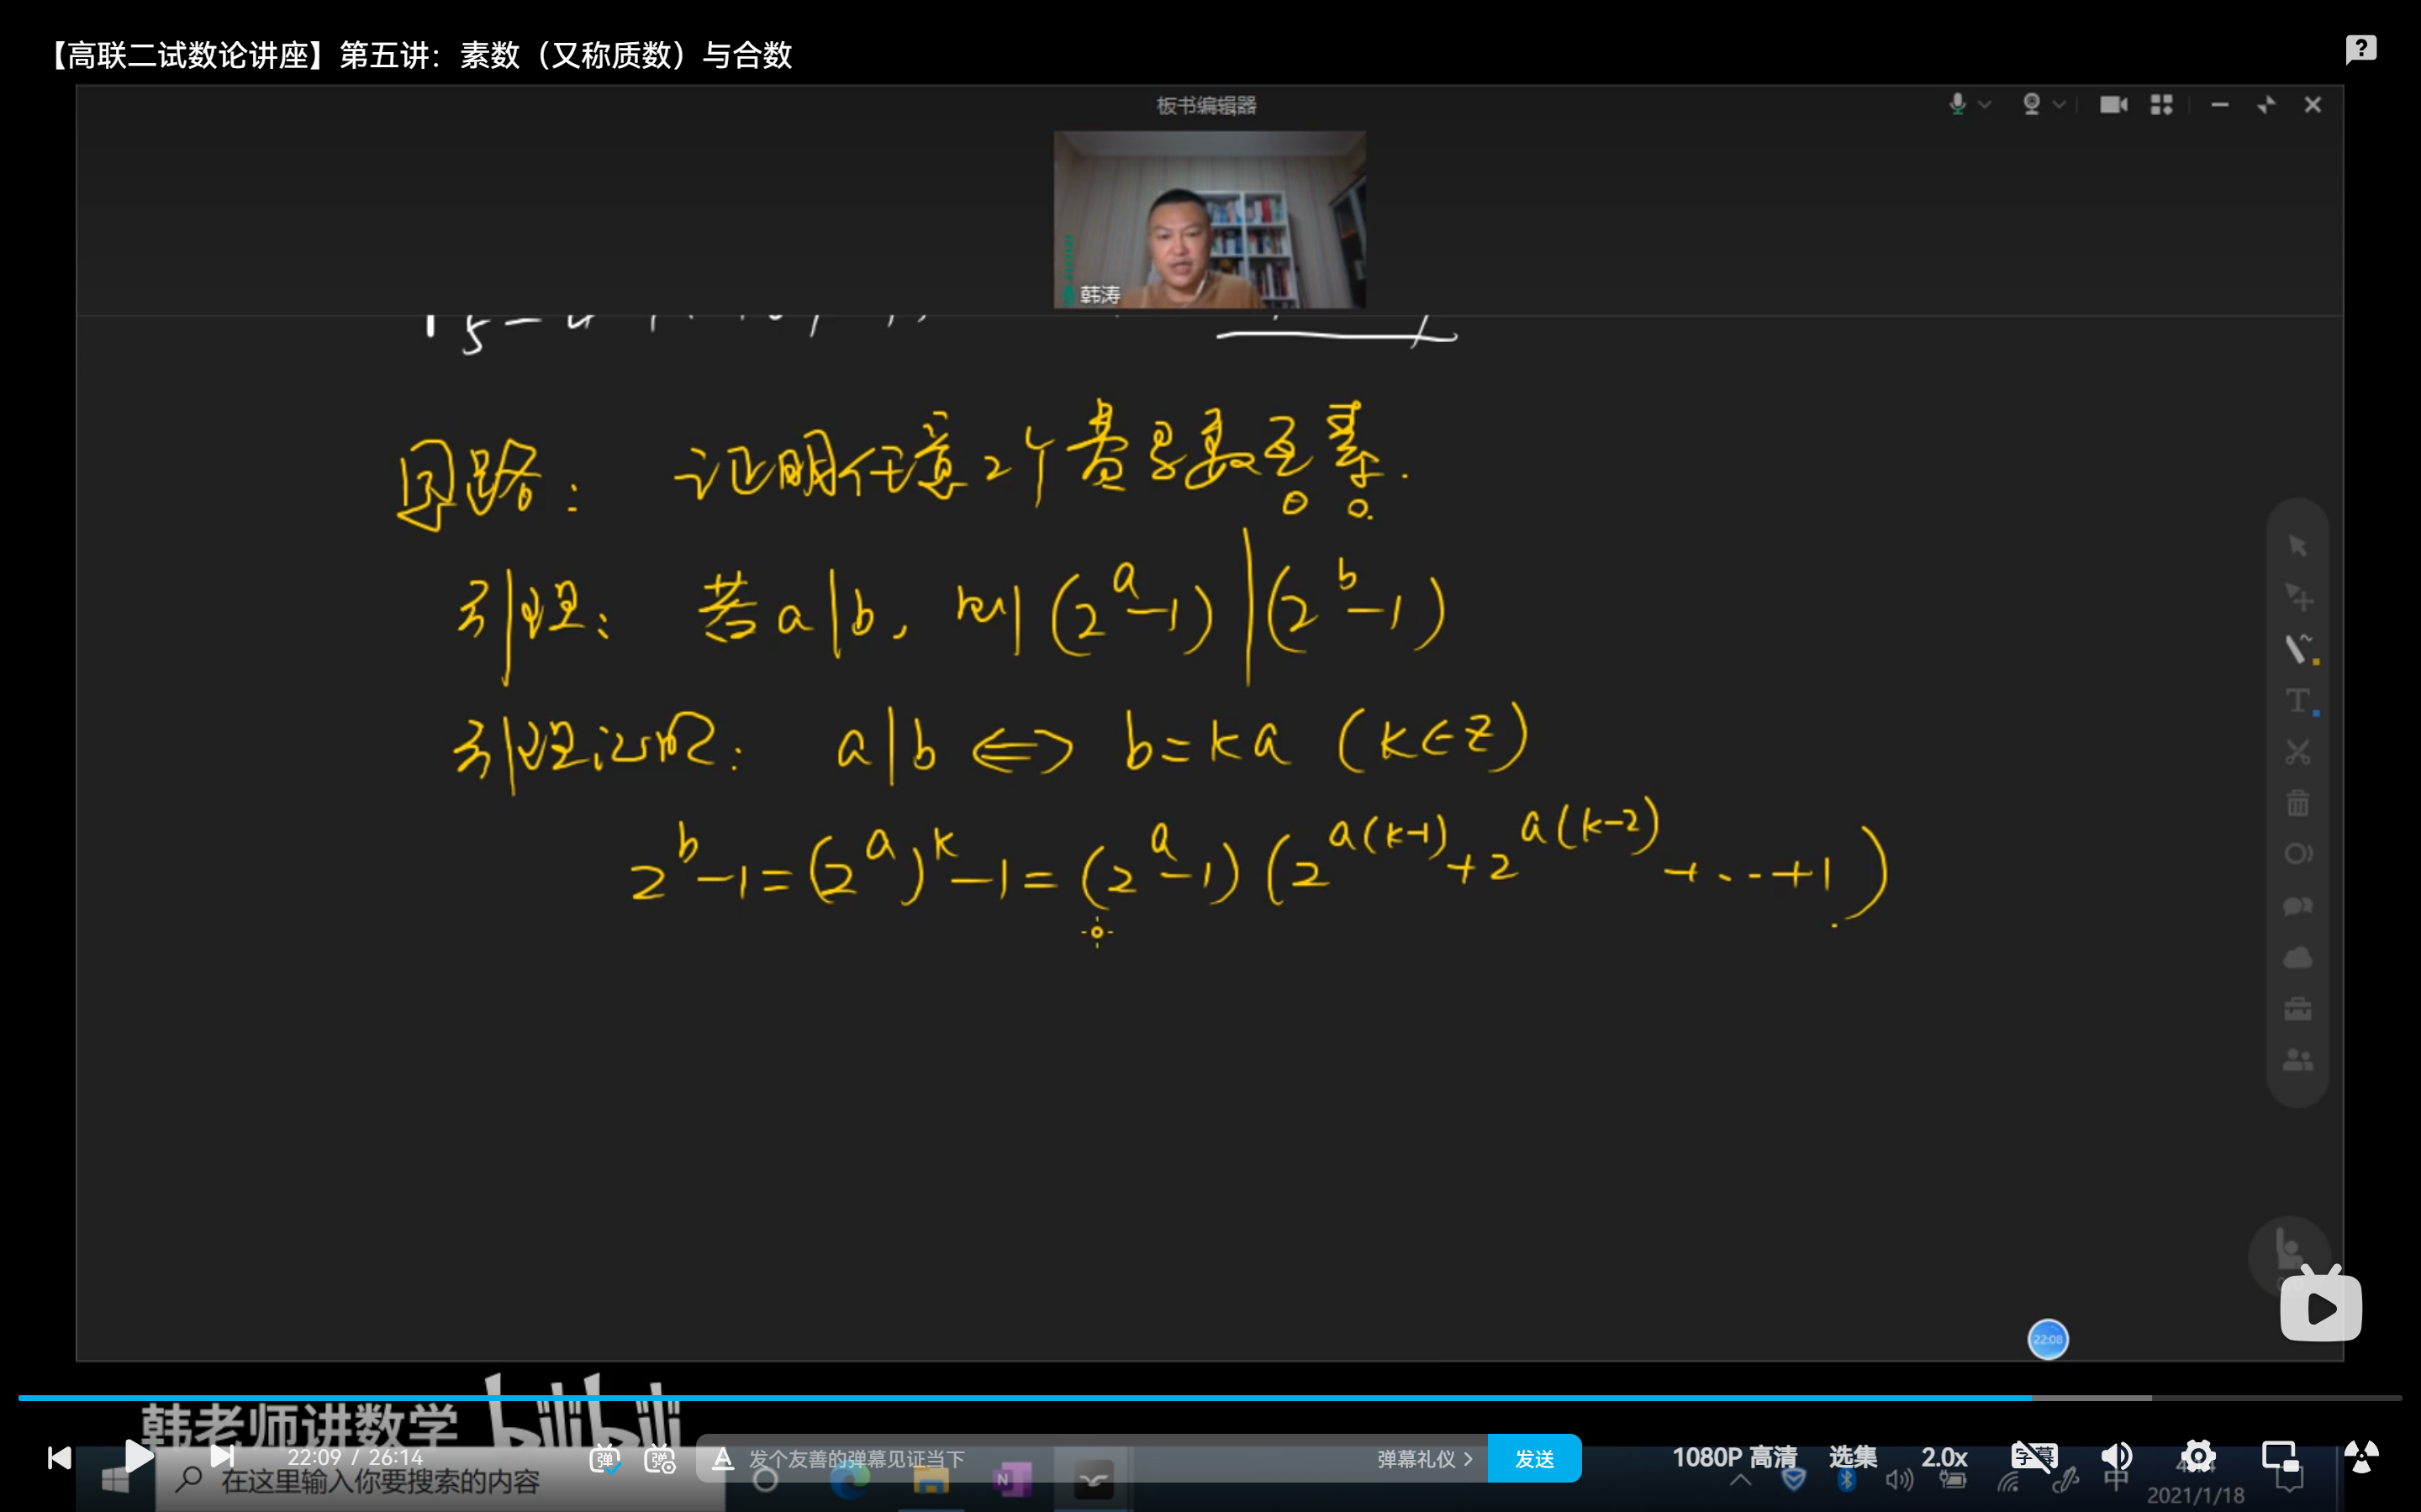 【高联二试数论讲座】第五讲：素数（又称质数）与合数
板书编辑器
韩涛
思路： 证明任意2个费马数互素.
引理： 若a|b, 则(2^a-1)|(2^b-1)
引理证明： a|b ⇔ b=ka (k∈Z)
2^b-1=(2^a)^k-1=(2^a-1)(2^{a(k-1)}+2^{a(k-2)}+...+1)
22:08
韩老师讲数学 bilibili
22:09 / 26:14
弹 弹 A 发个友善的弹幕见证当下 弹幕礼仪 > 发送 1080P 高清 选集 2.0x 字幕
在这里输入你要搜索的内容
中
2021/1/18